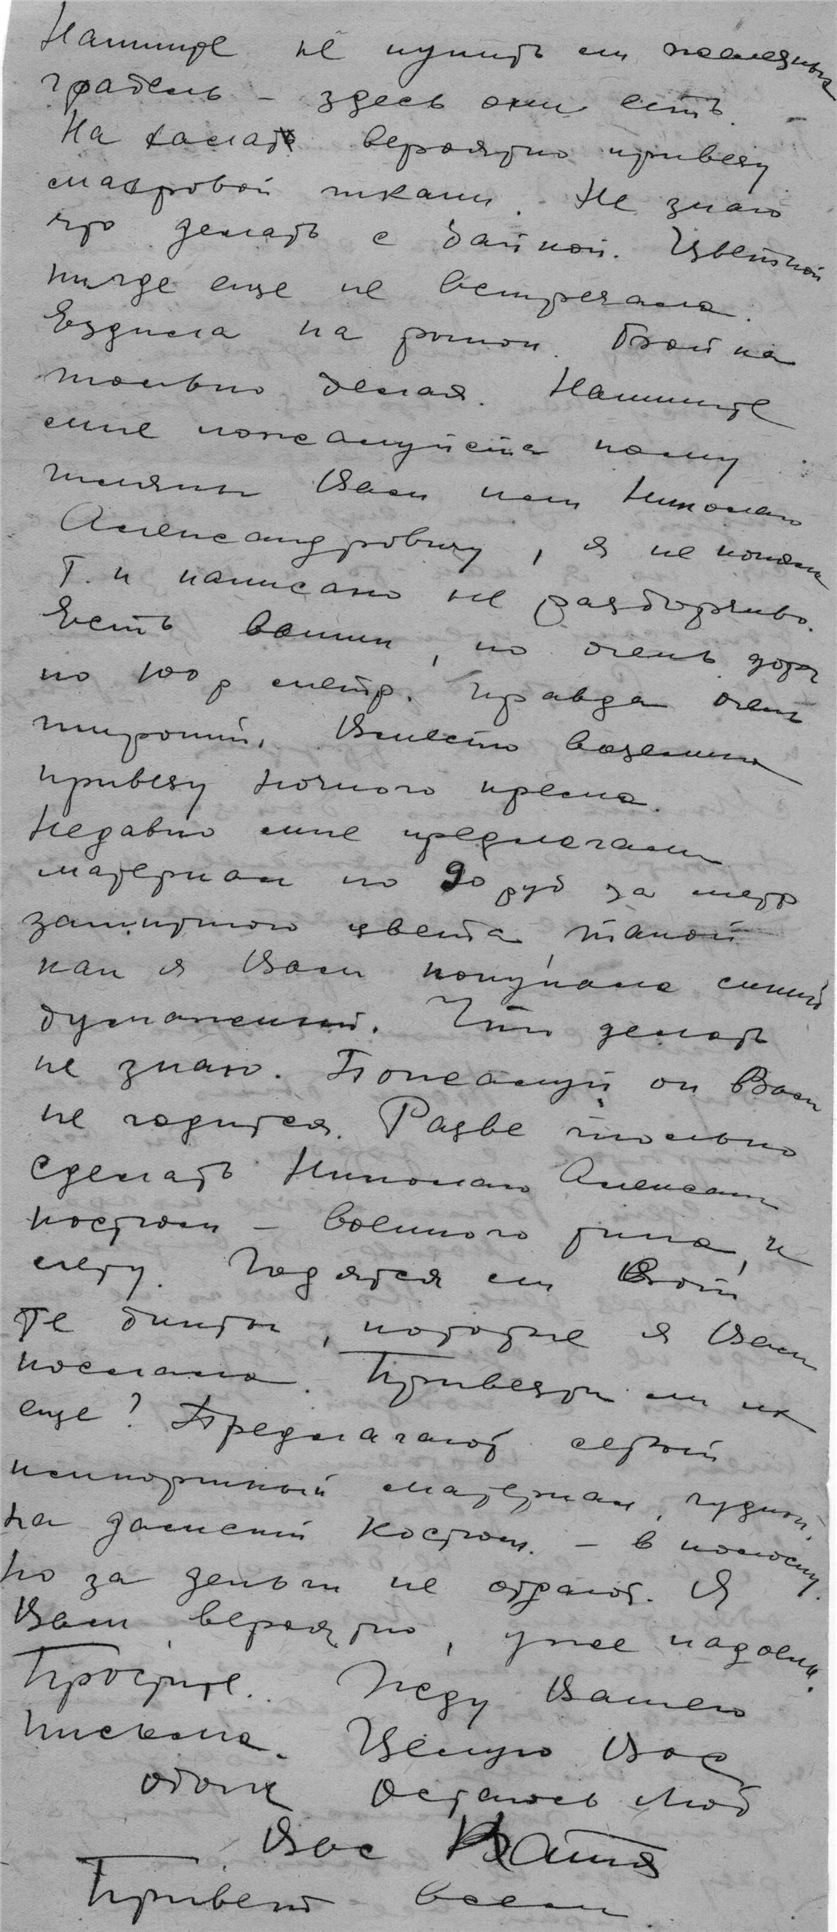 Напишите не купить ли железных
грабель – здесь они есть.
На халат вероятно привезу
махровой ткани. Не знаю
что делать с байкой. Цветной
нигде еще не встречала.
Ездила на рынок. Байка
только белая. Напишите
мне пожалуйста кому
Вам или Николаю
Александровичу, я не поняла
т.к написано не разборчиво.
Есть но очень дорог
по 100 р метр. Правда очень
широкий. Вместо вазелина
привезу ночного крема.
Недавно мне предлагали
материал по 90 руб за метр
защитного цвета, такой
как я Вам покупала синий
бумажный. Что делать
не знаю. Пожалуй он Вам
не годится. Разве только
сделать Николаю Алексан
костюм – военного типа, к
лету. Годятся ли
те бинты, которые я Вам
послала. Привезти ли их
еще? Предлагают серый
импортный материал, чудный,
на дамский костюм. – в полоску.
Но за деньги не отдают. Я
Вам вероятно, уже надоела.
Простите. Жду Вашего
письма. Целую Вас
обоих Остаюсь люб
Вас Катя
Привет всем.